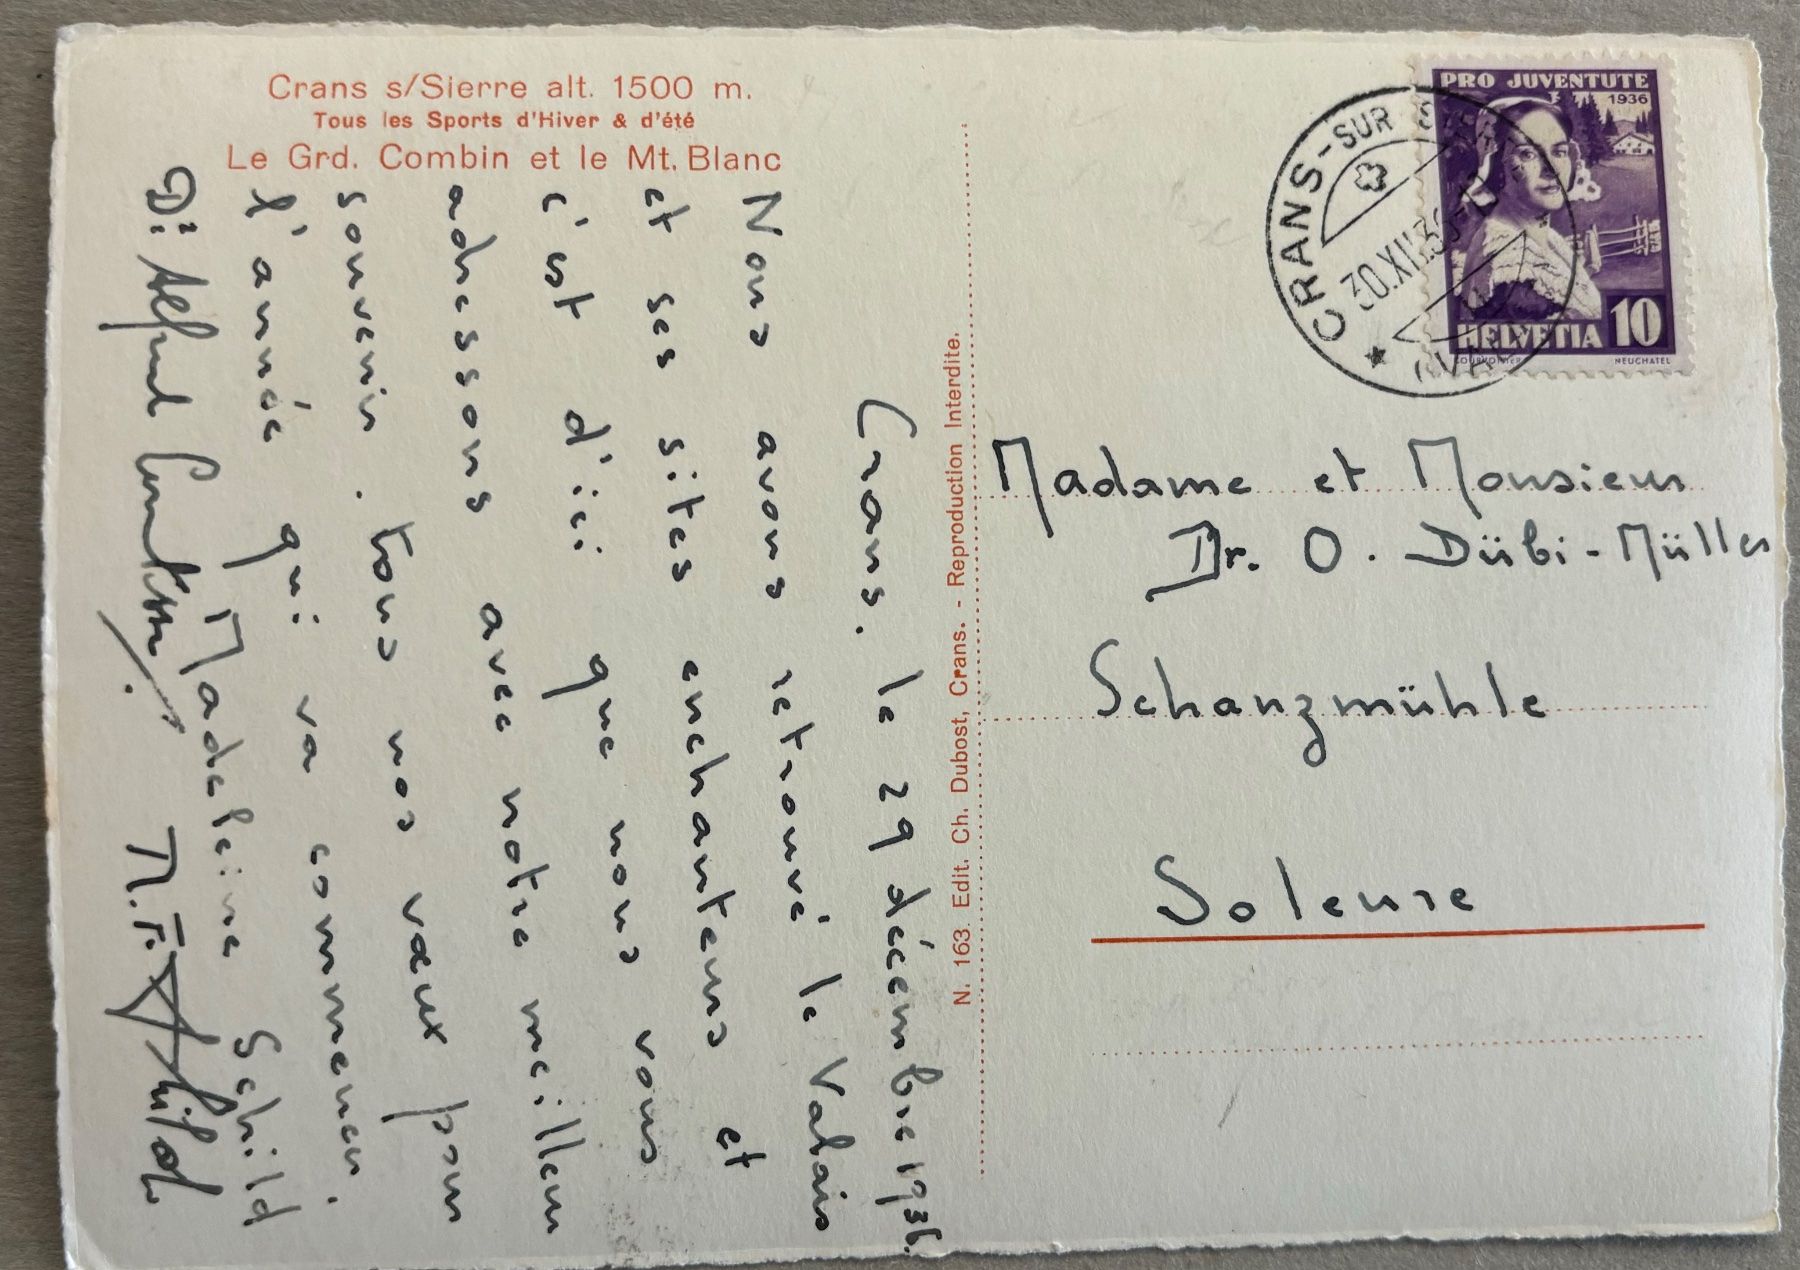 Crans s/Sierre alt. 1500 m.
Tous les Sports d'Hiver & d'été
Le Grd. Combin et le Mt. Blanc
Crans. le 29 décembre 1936.
Nous avons retrouvé le Valais
et ses sites enchanteurs et
c'est d'ici que nous vous
adressons avec notre meilleur
souvenir. tous nos vœux pour
l'année qui va commencer.
Madeleine Schild
Dr. Alfred
M. F. Schild
N. 163. Edit. Ch. Dubost, Crans. - Reproduction Interdite.
CRANS-SUR
30.XII.36
PRO JUVENTUTE
1936
HELVETIA 10
COURVOISIER NEUCHATEL
Madame et Monsieur
Dr. O. Dübi-Müller
Schanzmühle
Soleure